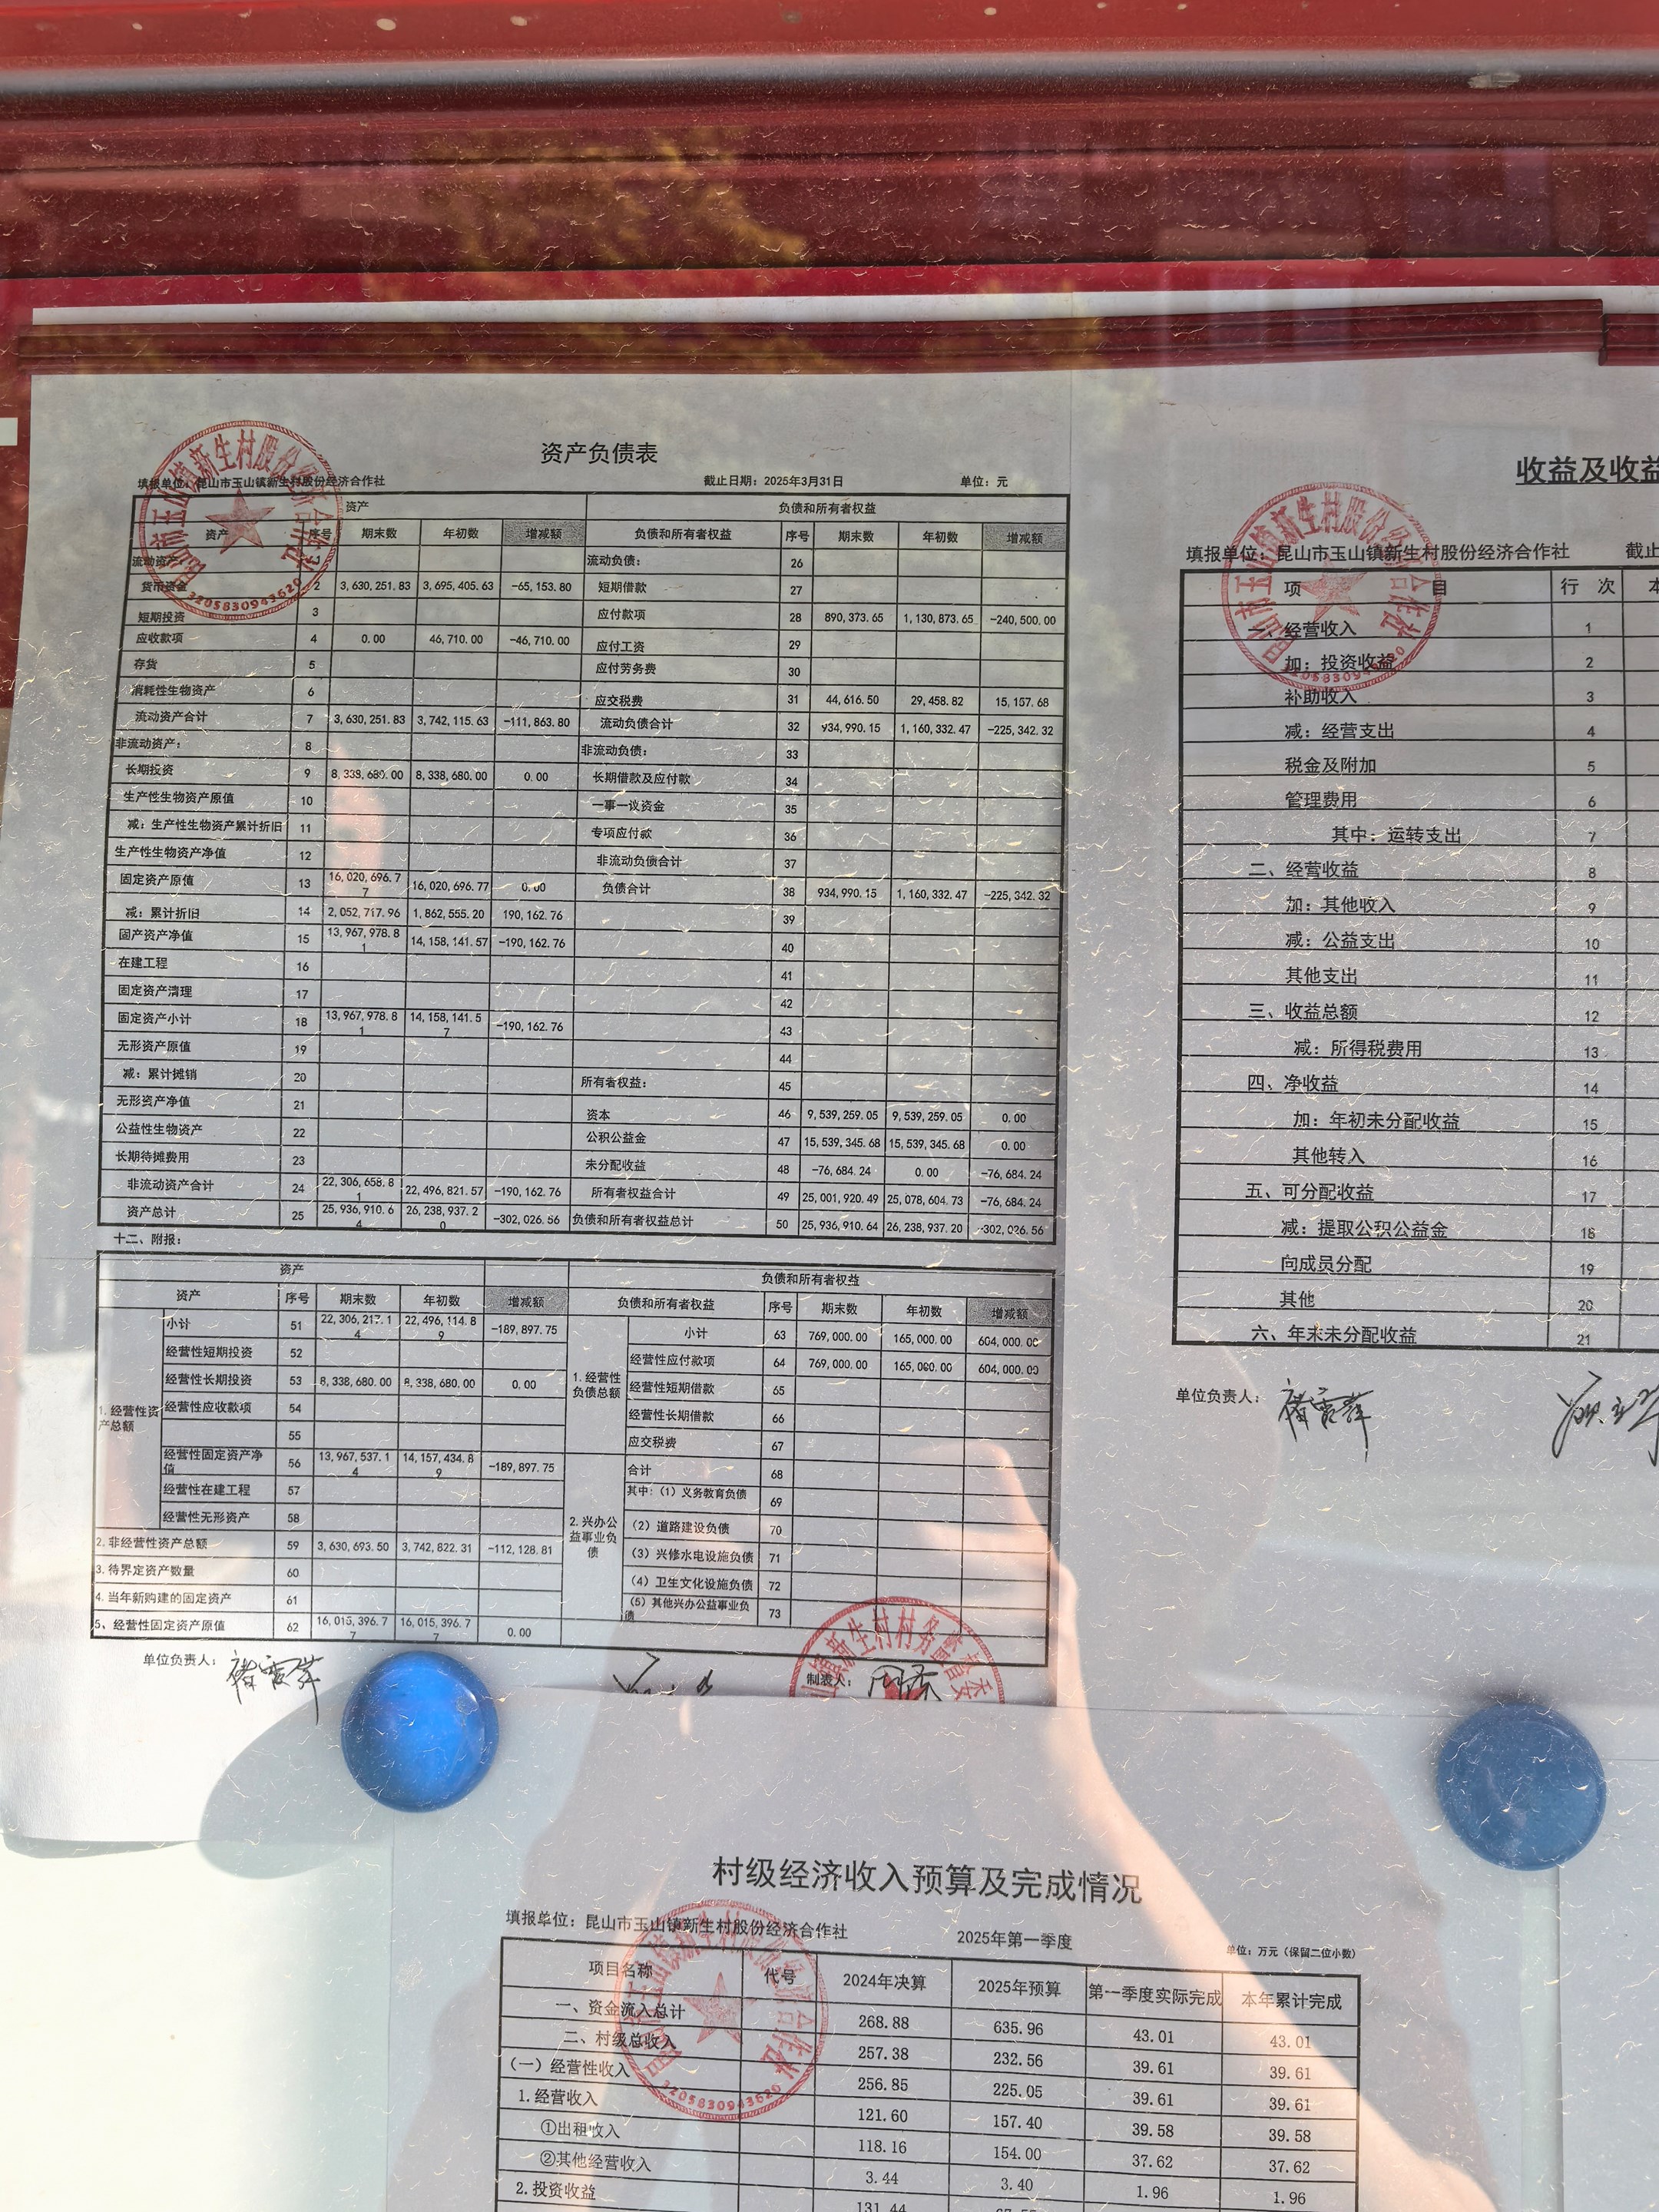 资产负债表
填报单位：昆山市玉山镇新生村股份经济合作社 截止日期：2025年3月31日 单位：元
资产 负债和所有者权益
资产 序号 期末数 年初数 增减额 负债和所有者权益 序号 期末数 年初数 增减额
流动资产 流动负债： 26
货币资金 2 3,630,251.83 3,695,405.63 -65,153.80 短期借款 27
短期投资 3 应付款项 28 890,373.65 1,130,873.65 -240,500.00
应收款项 4 0.00 46,710.00 -46,710.00 应付工资 29
存货 5 应付劳务费 30
消耗性生物资产 6 应交税费 31 44,616.50 29,458.82 15,157.68
流动资产合计 7 3,630,251.83 3,742,115.63 -111,863.80 流动负债合计 32 934,990.15 1,160,332.47 -225,342.32
非流动资产： 8 非流动负债： 33
长期投资 9 8,338,680.00 8,338,680.00 0.00 长期借款及应付款 34
生产性生物资产原值 10 一事一议资金 35
减：生产性生物资产累计折旧 11 专项应付款 36
生产性生物资产净值 12 非流动负债合计 37
固定资产原值 13 16,020,696.77 16,020,696.77 0.00 负债合计 38 934,990.15 1,160,332.47 -225,342.32
减：累计折旧 14 2,052,717.96 1,862,555.20 190,162.76 39
固产资产净值 15 13,967,978.81 14,158,141.57 -190,162.76 40
在建工程 16 41
固定资产清理 17 42
固定资产小计 18 13,967,978.81 14,158,141.57 -190,162.76 43
无形资产原值 19 44
减：累计摊销 20 所有者权益： 45
无形资产净值 21 资本 46 9,539,259.05 9,539,259.05 0.00
公益性生物资产 22 公积公益金 47 15,539,345.68 15,539,345.68 0.00
长期待摊费用 23 未分配收益 48 -76,684.24 0.00 -76,684.24
非流动资产合计 24 22,306,658.81 22,496,821.57 -190,162.76 所有者权益合计 49 25,001,920.49 25,078,604.73 -76,684.24
资产总计 25 25,936,910.64 26,238,937.20 -302,026.56 负债和所有者权益总计 50 25,936,910.64 26,238,937.20 -302,026.56
十二、附报：
资产 负债和所有者权益
资产 序号 期末数 年初数 增减额 负债和所有者权益 序号 期末数 年初数 增减额
1.经营性资产总额 小计 51 22,306,217.14 22,496,114.89 -189,897.75 1.经营性负债总额 小计 63 769,000.00 165,000.00 604,000.00
经营性短期投资 52 经营性应付款项 64 769,000.00 165,000.00 604,000.00
经营性长期投资 53 8,338,680.00 8,338,680.00 0.00 经营性短期借款 65
经营性应收款项 54 经营性长期借款 66
55 应交税费 67
经营性固定资产净值 56 13,967,537.14 14,157,434.89 -189,897.75 2.兴办公益事业负债 合计 68
经营性在建工程 57 其中：（1）义务教育负债 69
经营性无形资产 58 （2）道路建设负债 70
2.非经营性资产总额 59 3,630,693.50 3,742,822.31 -112,128.81 （3）兴修水电设施负债 71
3.待界定资产数量 60 （4）卫生文化设施负债 72
4.当年新购建的固定资产 61 （5）其他兴办公益事业负债 73
5、经营性固定资产原值 62 16,015,396.77 16,015,396.77 0.00
单位负责人： 制表人：
收益及收益
填报单位：昆山市玉山镇新生村股份经济合作社 截止
项 目 行 次 本
一、经营收入 1
加：投资收益 2
补助收入 3
减：经营支出 4
税金及附加 5
管理费用 6
其中：运转支出 7
二、经营收益 8
加：其他收入 9
减：公益支出 10
其他支出 11
三、收益总额 12
减：所得税费用 13
四、净收益 14
加：年初未分配收益 15
其他转入 16
五、可分配收益 17
减：提取公积公益金 18
向成员分配 19
其他 20
六、年末未分配收益 21
单位负责人：
村级经济收入预算及完成情况
填报单位：昆山市玉山镇新生村股份经济合作社 2025年第一季度 单位：万元（保留二位小数）
项目名称 代号 2024年决算 2025年预算 第一季度实际完成 本年累计完成
一、资金流入总计 268.88 635.96 43.01 43.01
二、村级总收入 257.38 232.56 39.61 39.61
（一）经营性收入 256.85 225.05 39.61 39.61
1.经营收入 121.60 157.40 39.58 39.58
①出租收入 118.16 154.00 37.62 37.62
②其他经营收入 3.44 3.40 1.96 1.96
2.投资收益 131.44